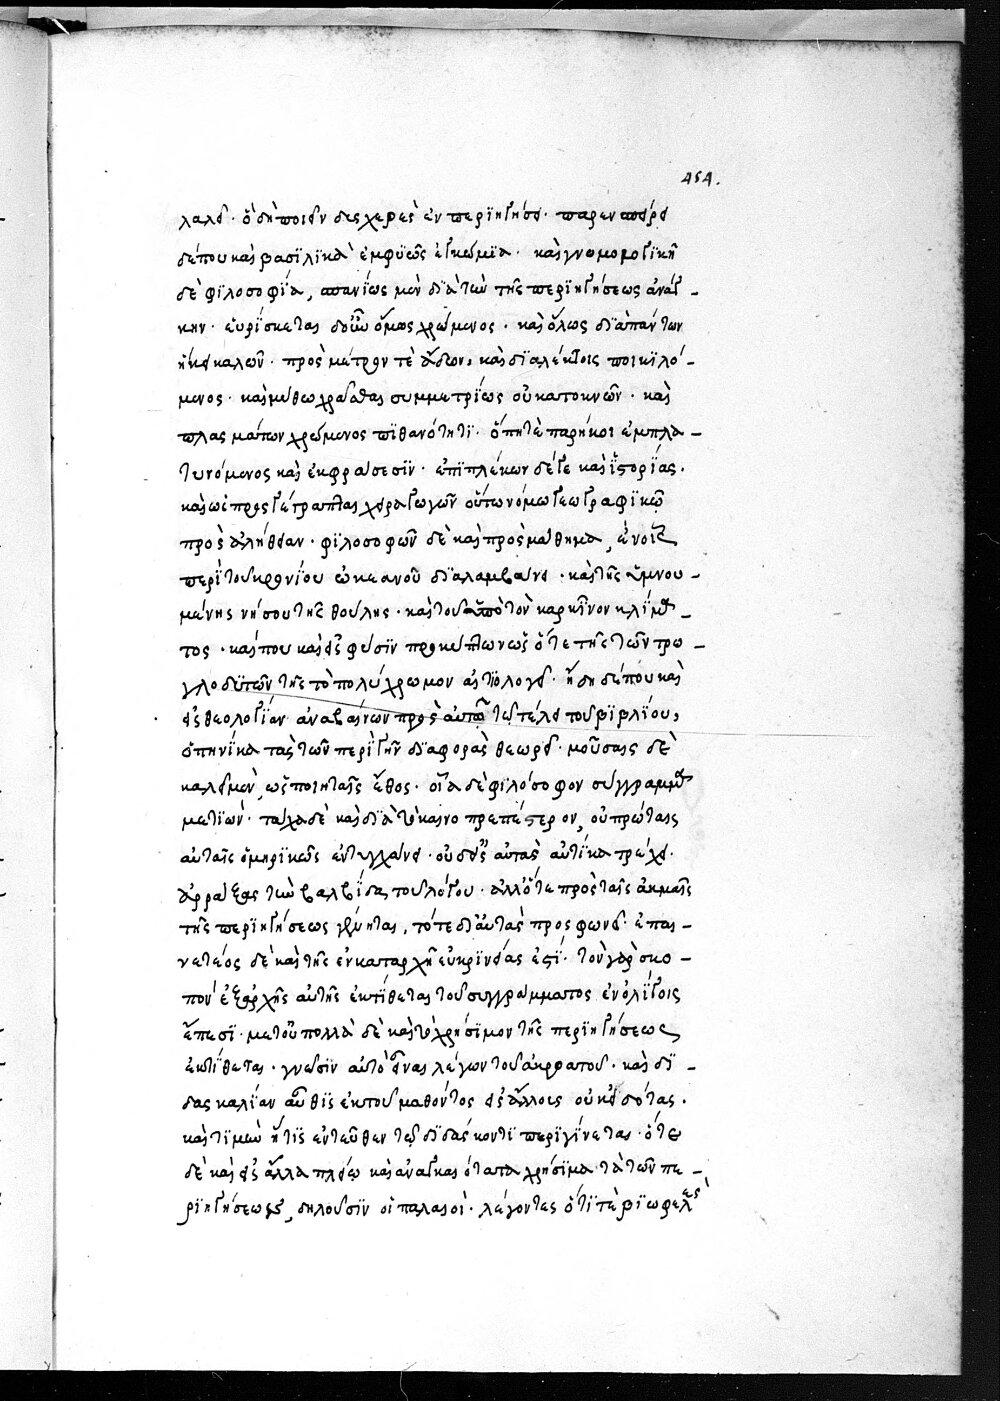 454.
λαλεῖ· ὃ δὴ ποιεῖν δυσχερὲς ἐν περιηγήσει· παρενσπείρει
δέ που καὶ βασιλικὰ ἐμφυῶς ἐγκώμια· καὶ γνωμολογικῇ
δὲ φιλοσοφίᾳ, σπανίως μὲν διὰ τὴν τῆς περιηγήσεως ἀνάγ-
κην· εὑρίσκεται δ' οὖν ὅμως χρώμενος· καὶ ὅλως διὰ πάντων
ἥκει καλῶν· πρὸς μέτρον τὲ ᾄδων, καὶ διαλέκτοις ποικιλό-
μενος· καὶ μύθῳ χρᾶσθαι συμμετρίως οὐκ ἀποκνῶν· καὶ
πλάσματι χρώμενος πιθανότητι· ὅπη τὲ παρήκοι ἐμπλα-
τυνόμενος καὶ ἐκφράσεσιν· ἐπιπλέκων δέ γε καὶ ἱστορίας·
καὶ ὡς πρός γε τράπεζας χειραγωγῶν οὕτω νόμῳ γεωγραφικῷ
πρὸς ἀλήθειαν· φιλοσοφῶν δὲ καὶ πρὸς μάθημα, ἐν οἷς
περὶ τοῦ κρονίου ὠκεανοῦ διαλαμβάνει· καὶ τῆς ὑμνου-
μένης νήσου τῆς θούλης· καὶ τοῦ ὑπὸ τὸν καρκίνον κλίμα-
τος· καί που καὶ εἰς φύσιν προκύπτων ὡς ὅτε τῆς τῶν τρω-
γλοδυτῶν γῆς τὸ πολύχρωμον αἰτιολογεῖ· ἤδη δέ που καὶ
εἰς θεολογίαν ἀναβαίνων πρὸς αὐτῷ τῷ τέλει τοῦ βιβλίου,
ὁπηνίκα τὰς τῶν περὶ γῆν διαφορὰς θεωρεῖ· μούσας δὲ
καλεῖ μὲν, ὡς ποιηταῖς ἔθος· οἷα δὲ φιλόσοφον συγγραμμά-
μετιών· τάχα δὲ καὶ διὰ τὸ καινοπρεπέστερον, οὐ πρώταις
αὐταῖς ὁμηρικῶς ἐντυγχάνει· οὐδ' ἐς αὐτὰς αὐτίκα τρέχει·
ἀρράξας τὴν βαλβῖδα τοῦ λόγου· ἀλλ' ὅτε πρὸς ταῖς ἀκμαῖς
τῆς περιηγήσεως γένηται, τότε δι' αὐτὰς προσφωνεῖ· ἐπαι-
νετέος δὲ καὶ τῆς ἐν καταρχῇ εὐκρινείας ἐστί· τὸν γὰρ σκο-
πὸν ἐξαρχῆς αὐτῆς ἐκτίθεται τοῦ συγγράμματος ἐν ὀλίγοις
ἔπεσι· μετ' οὐ πολλὰ δὲ καὶ τὸ χρήσιμον τῆς περιηγήσεως
ἐκτίθεται· γνῶσιν αὐτὸ εἶναι λέγων τοῦ ἀκροατοῦ· καὶ δι-
δασκαλίαν αὖθις ἐκ τοῦ μαθόντος εἰς ἄλλους οὐκ εἰδότας·
καὶ τιμὴν ἥτις ἐντεῦθεν τῷ διδάσκοντι περιγίνεται· ὅτι
δὲ καὶ εἰς ἄλλα πλείω καὶ ἀναγκαιότατα χρήσιμα τὰ τῶν πε-
ριηγήσεων, δηλοῦσιν οἱ παλαιοὶ· λέγοντες ὅτι τὲ βιωφελὲς